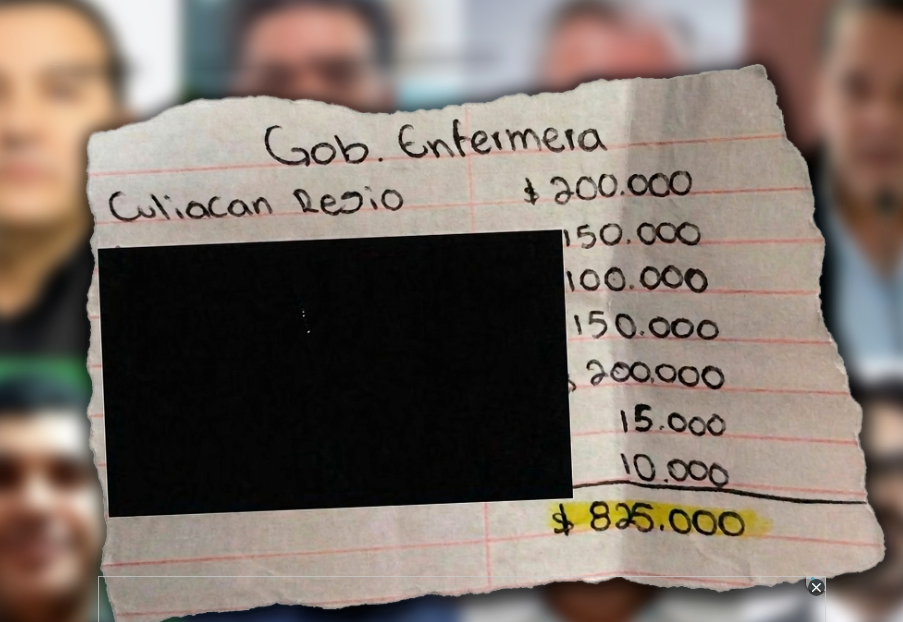 Gob. Enfermera
Culiacan Regio $ 200.000
150.000
100.000
150.000
$ 200.000
15.000
10.000
$ 825.000